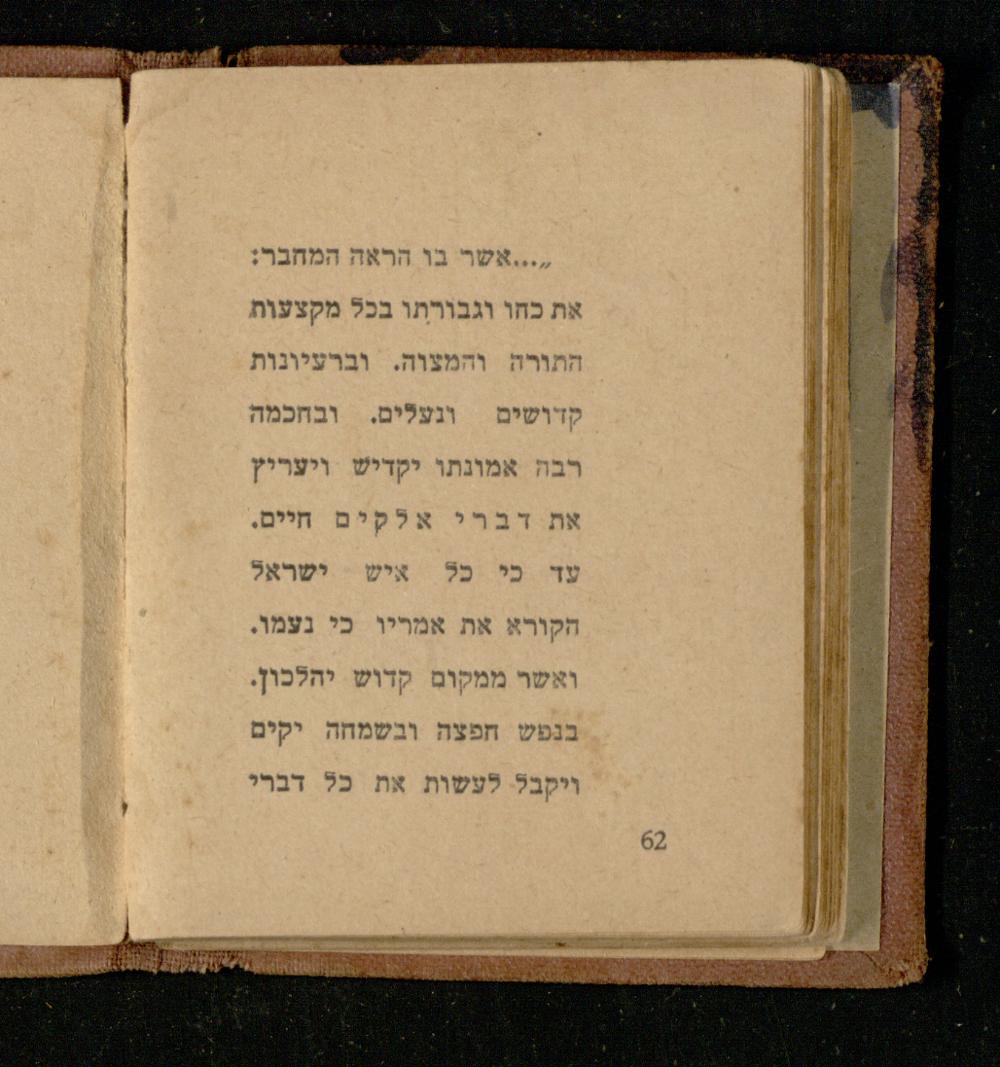 „...אשר בו הראה המחבר:
את כחו וגבורתו בכל מקצעות
התורה והמצוה. וברעיונות
קדושים ונעלים. ובחכמה
רבה אמונתו יקדיש ויעריץ
את דברי אלקים חיים.
עד כי כל איש ישראל
הקורא את אמריו כי נעמו.
ואשר ממקום קדוש יהלכון.
בנפש חפצה ובשמחה יקים
ויקבל לעשות את כל דברי
62